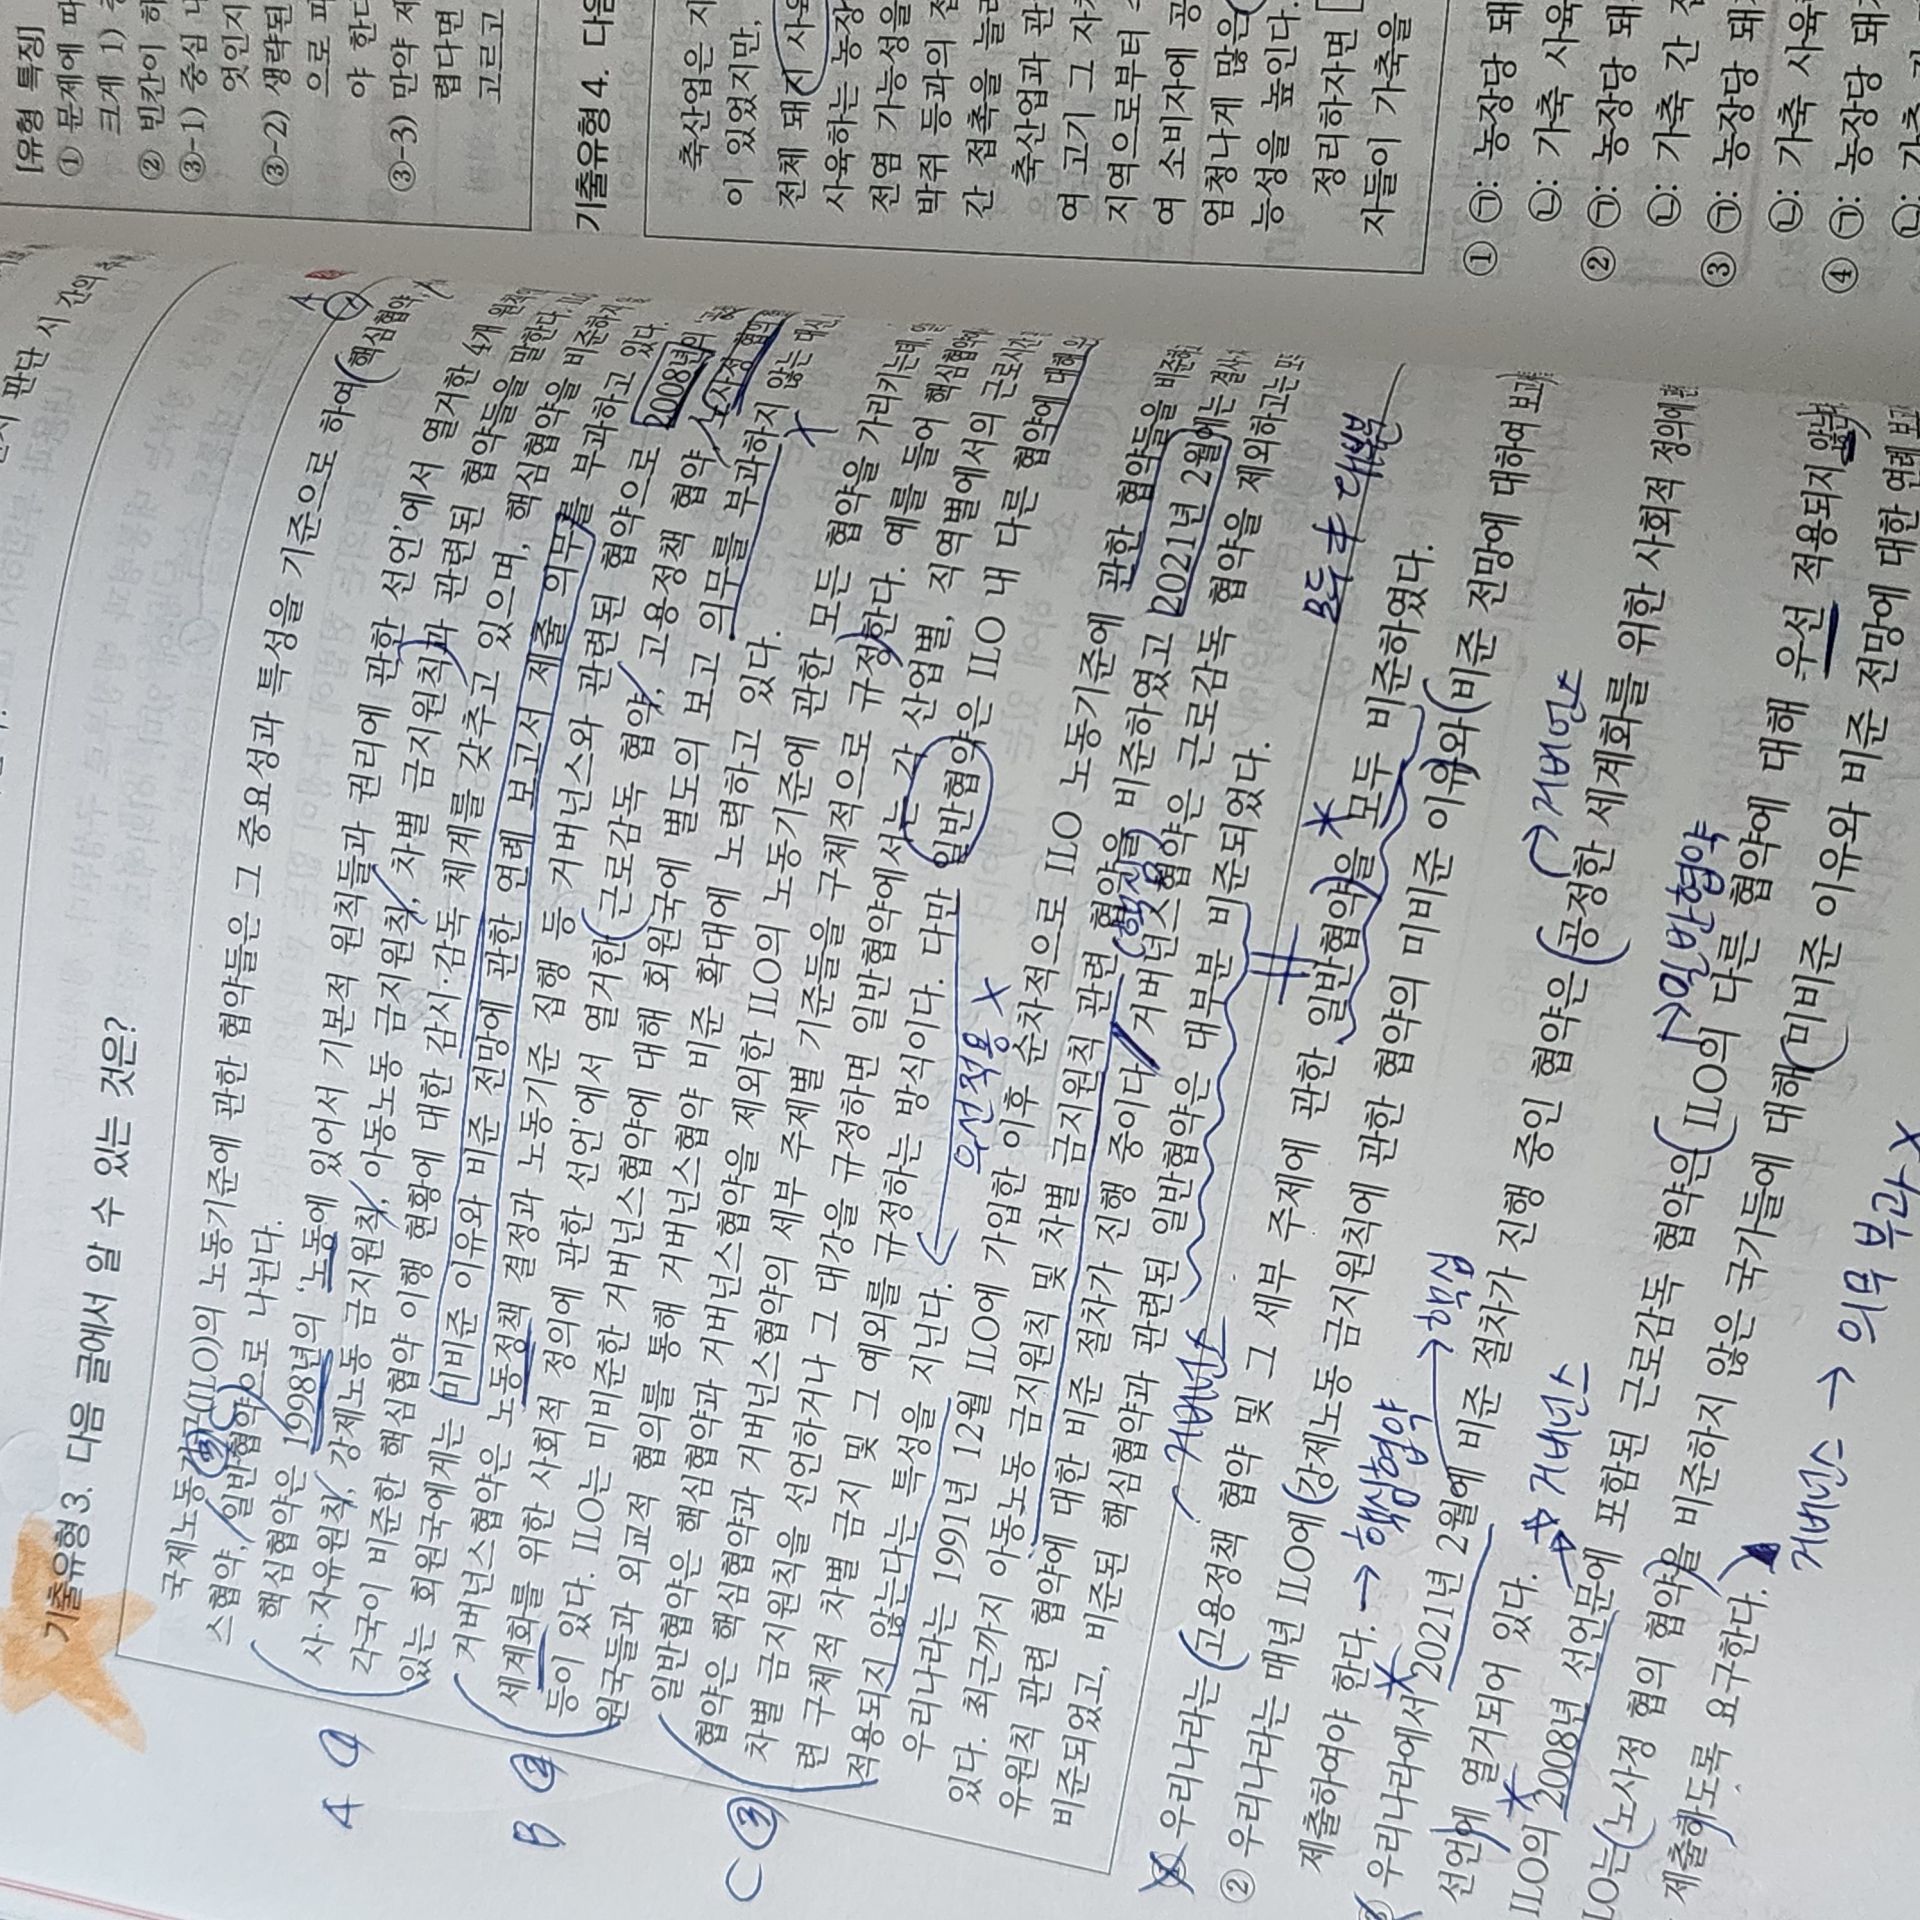 [유형 특징]
① 문제에 따
크게 1) 
② 빈칸이 하
③-1) 중심 내
엇인지
③-2) 생략된
으로 파
야 한다
③-3) 만약 제
렵다면
고르고
기출유형 4. 다음
축산업은 지
이 있었지만,
전체 돼지 사육
사육하는 농장
전염 가능성을
박쥐 등과의 접
간 접촉을 늘려
축산업과 관
여 고기 그 자체
지역으로부터
여 소비자에 공
엄청나게 많은
능성을 높인다.
정리하자면 [
자들이 가축을
① ㉠: 농장당 돼
㉡: 가축 사육
② ㉠: 농장당 돼
㉡: 가축 간 접
③ ㉠: 농장당 돼
㉡: 가축 사육
④ ㉠: 농장당 돼지
㉡: 가축 간
판단 시 간의
기출유형 3. 다음 글에서 알 수 있는 것은?
국제노동기구(ILO)의 노동기준에 관한 협약들은 그 중요성과 특성을 기준으로 하여 핵심협약,
스협약, 일반협약으로 나뉜다.
핵심협약은 1998년의 ‘노동에 있어서 기본적 원칙들과 권리에 관한 선언’에서 열거한 4개 원칙
사·자유원칙, 강제노동 금지원칙, 아동노동 금지원칙, 차별 금지원칙과 관련된 협약들을 말한다. ILO
각국이 비준한 핵심협약 이행 현황에 대한 감시·감독 체계를 갖추고 있으며, 핵심협약을 비준하지
있는 회원국에게는 미비준 이유와 비준 전망에 관한 연례 보고서 제출 의무를 부과하고 있다.
거버넌스협약은 노동정책 결정과 노동기준 집행 등 거버넌스와 관련된 협약으로 2008년의
세계화를 위한 사회적 정의에 관한 선언’에서 열거한 근로감독 협약, 고용정책 협약, 노사정 협의
등이 있다. ILO는 미비준한 거버넌스협약에 대해 회원국에 별도의 보고 의무를 부과하지 않는 대신
원국들과 외교적 협의를 통해 거버넌스협약 비준 확대에 노력하고 있다.
일반협약은 핵심협약과 거버넌스협약을 제외한 ILO의 노동기준에 관한 모든 협약을 가리키는데,
협약은 핵심협약과 거버넌스협약의 세부 주제별 기준들을 구체적으로 규정한다. 예를 들어 핵심협약에
차별 금지원칙을 선언하거나 그 대강을 규정하면 일반협약에서는 각 산업별, 직역별에서의 근로시간
련 구체적 차별 금지 및 그 예외를 규정하는 방식이다. 다만 일반협약은 ILO 내 다른 협약에 대해
적용되지 않는다는 특성을 지닌다.
우리나라는 1991년 12월 ILO에 가입한 이후 순차적으로 ILO 노동기준에 관한 협약들을 비준하
있다. 최근까지 아동노동 금지원칙 및 차별 금지원칙 관련 협약을 비준하였고 2021년 2월에는 결사
유원칙 관련 협약에 대한 비준 절차가 진행 중이다. 거버넌스협약은 근로감독 협약을 제외하고는 모두
비준되었고, 비준된 핵심협약과 관련된 일반협약은 대부분 비준되었다.
A ①
B ②
C ③
우선적용 X
모두 ≠ 대부분
거버넌스
① 우리나라는 고용정책 협약 및 그 세부 주제에 관한 일반협약을 모두 비준하였다.
② 우리나라는 매년 ILO에 강제노동 금지원칙에 관한 협약의 미비준 이유와 비준 전망에 대하여 보고
제출하여야 한다. → 핵심협약
우리나라에서 2021년 2월에 비준 절차가 진행 중인 협약은 공정한 세계화를 위한 사회적 정의에 관
→ 핵심
→ 거버넌스
선언에 열거되어 있다.
ILO의 2008년 선언문에 포함된 근로감독 협약은 ILO의 다른 협약에 대해 우선 적용되지 않는
→ 거버넌스
→ 일반협약
LO는 노사정 협의 협약을 비준하지 않은 국가들에 대해 미비준 이유와 비준 전망에 대한 연례 보고
제출하도록 요구한다.
거버넌스 → 의무 부과 X